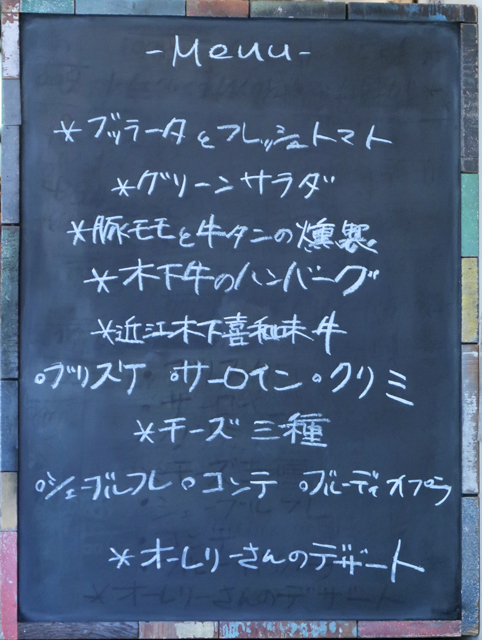 -Menu-
*ブッラータとフレッシュトマト
*グリーンサラダ
*豚モモと牛タンの燻製
*木下牛のハンバーグ
*近江木下喜和味牛
○ブリスケ ○サーロイン ○クリミ
*チーズ三種
○シェーブルフレ ○コンテ ○ブルーディオブラ
*オーレリーさんのデザート